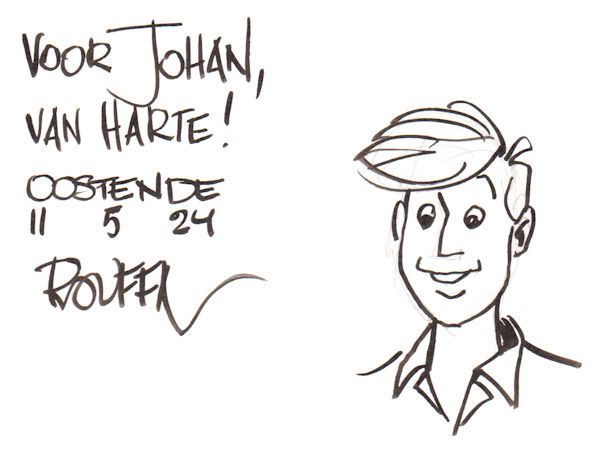 VOOR JOHAN,
VAN HARTE!
OOSTENDE
11 5 24